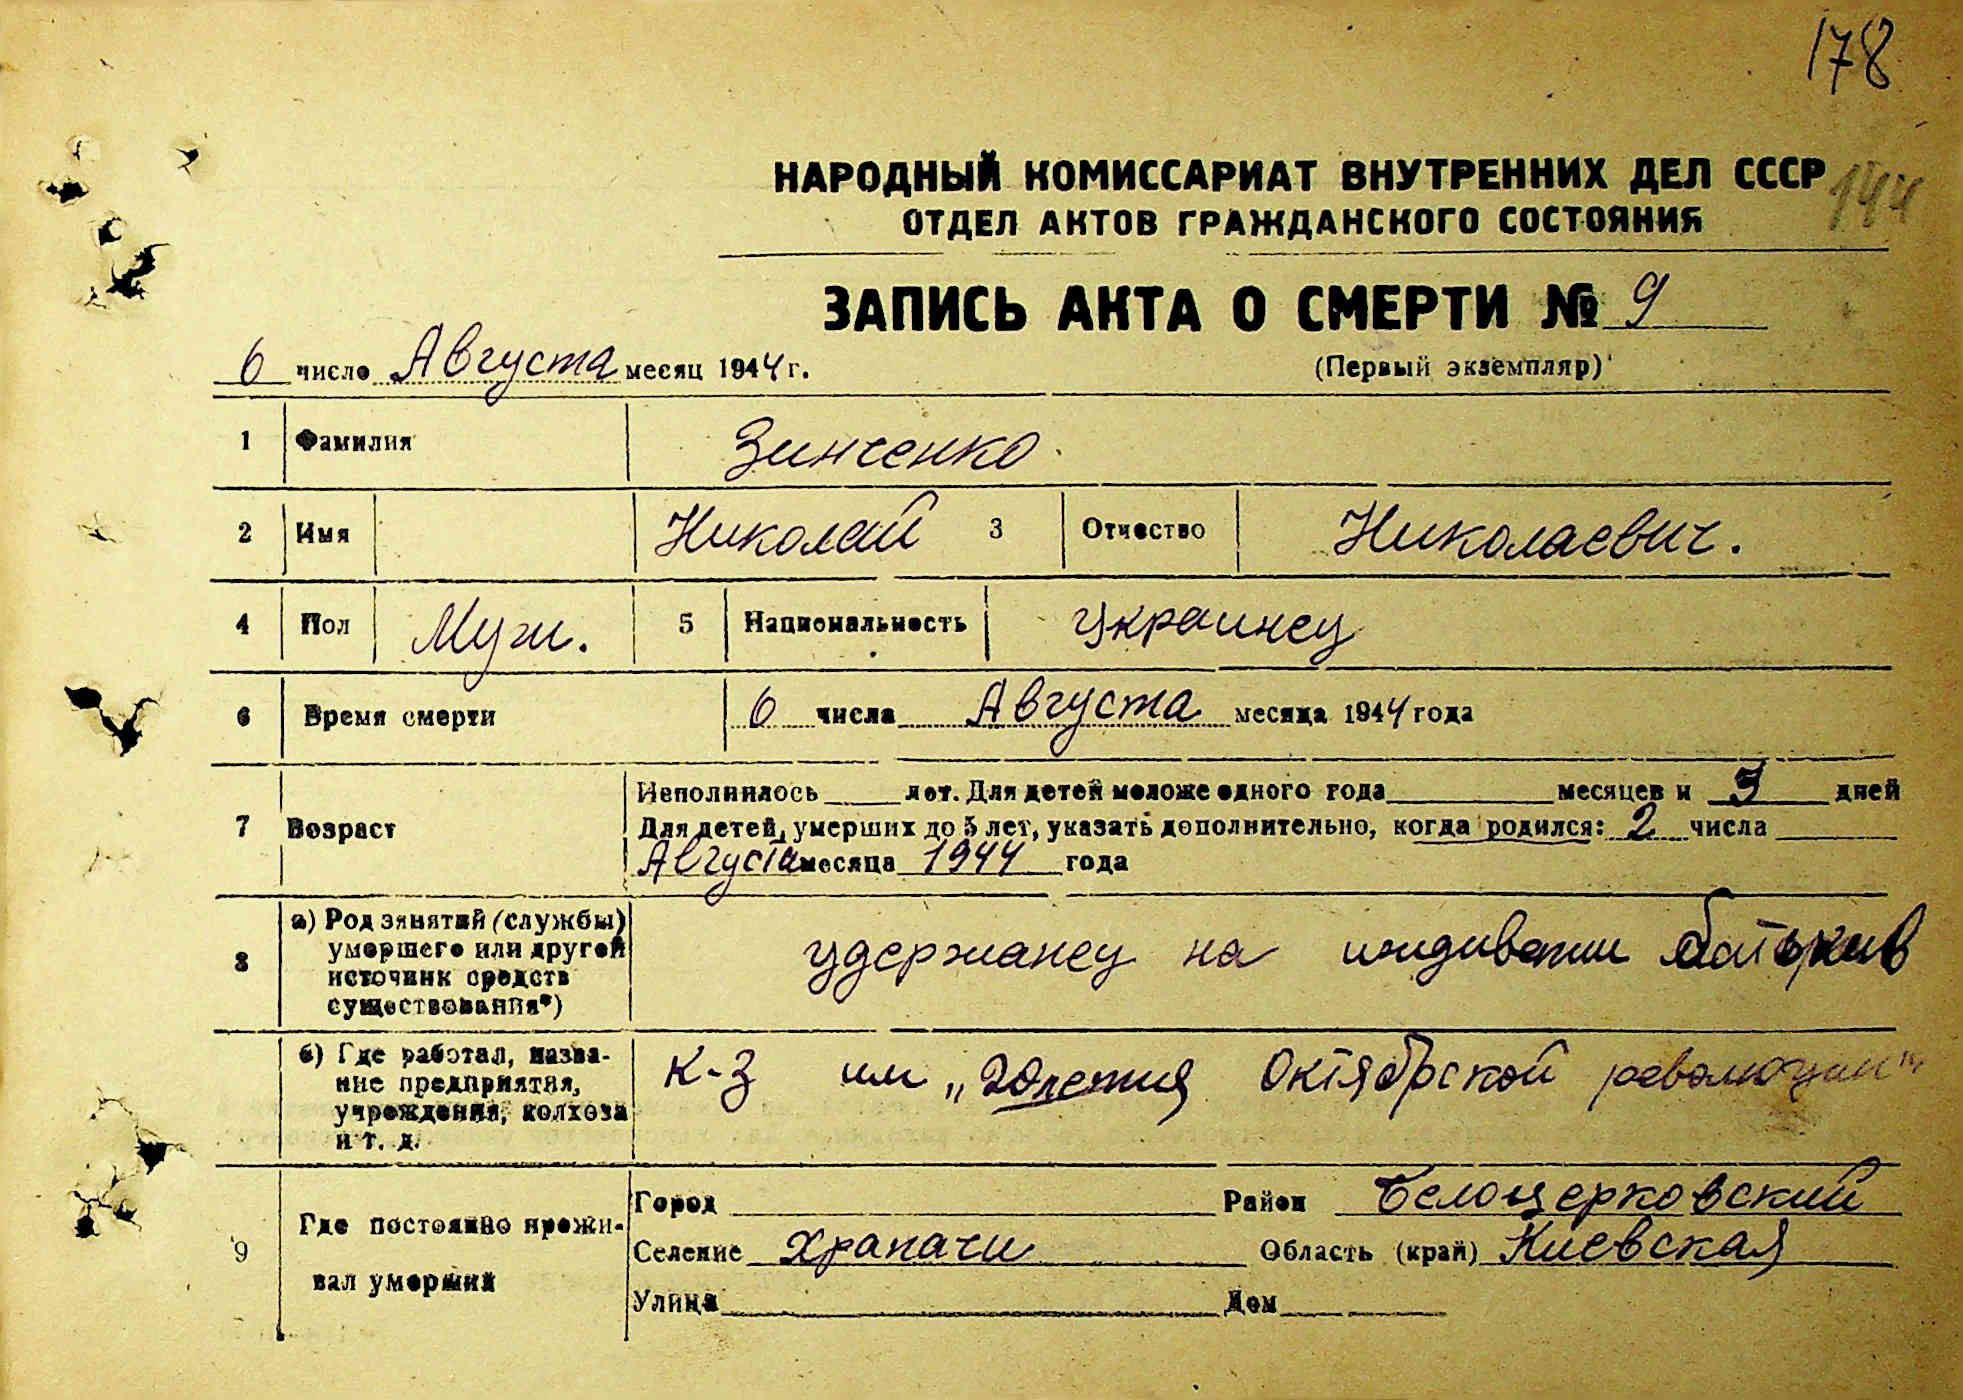 178
НАРОДНЫЙ КОМИССАРИАТ ВНУТРЕННИХ ДЕЛ СССР 144
ОТДЕЛ АКТОВ ГРАЖДАНСКОГО СОСТОЯНИЯ
ЗАПИСЬ АКТА О СМЕРТИ № 9
6 число Августа месяц 1944 г. (Первый экземпляр)
1 Фамилия Зинченко
2 Имя Николай 3 Отчество Николаевич.
4 Пол Муж. 5 Национальность украинец
6 Время смерти 6 числа Августа месяца 1944 года
Исполнилось лет. Для детей моложе одного года месяцев и дней
7 Возраст Для детей, умерших до 5 лет, указать дополнительно, когда родился: 2 числа
Августа месяца 1944 года
8 а) Род занятий (службы)
умершего или другой
источник средств
существования*)
удержанец на иждивении батьков
б) Где работал, назва-
ние предприятия,
учреждения, колхоза
и т. д.
К-З им „20летия Октябрской революции"
9 Где постоянно прожи-
вал умерший
Город Район Белоцерковский
Селение Храпачи Область (край) Киевская
Улица Дом